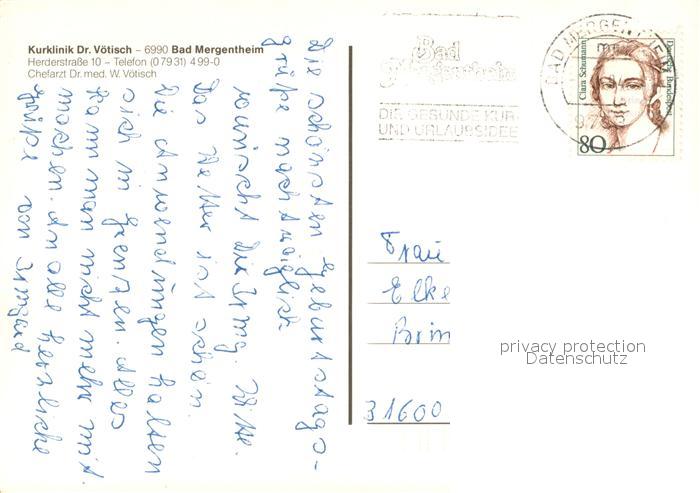 Kurklinik Dr. Vötisch – 6990 Bad Mergentheim
Herderstraße 10 – Telefon (0 79 31) 4 99-0
Chefarzt Dr. med. W. Vötisch
Die schönsten Geburtstags-
grüße nachträglich
wünscht Dir Irmg.
Das Wetter ist schön.
die Anwendungen halten
sich in Grenzen. Alles
kann man nicht mehr mit
machen. An alle herzliche
Grüße von Irmgard
Bad
Mergentheim
DIE GESUNDE KUR-
UND URLAUBSIDEE
BAD MERGENTHEIM
Clara Schumann
Deutsche Bundespost
80
Frau
Elke
31600
privacy protection
Datenschutz